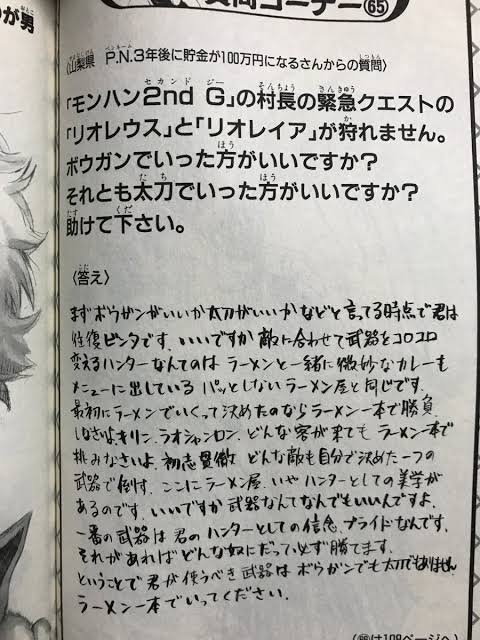 質問コーナー㊿
が男
〈山梨県 P.N.3年後に貯金が100万円になるさんからの質問〉
「モンハン2nd G」の村長の緊急クエストの
「リオレウス」と「リオレイア」が狩れません。
ボウガンでいった方がいいですか?
それとも太刀でいった方がいいですか?
助けて下さい。
〈答え〉
まずボウガンがいいか太刀がいいかなどと言ってる時点で君は
往復ビンタです。いいですか敵に合わせて武器をコロコロ
変えるハンターなんてのは ラーメンと一緒に微妙なカレーも
メニューに出している パッとしないラーメン屋と同じです。
最初にラーメンでいくって決めたのならラーメン一本で勝負
しなさいよ。キリン、ラオシャンロン、どんな客が来ても ラーメン一本で
挑みなさいよ。初志貫徹 どんな敵も自分で決めた一つの
武器で倒す。ここにラーメン屋、いやハンターとしての美学が
あるのです。いいですか武器なんてなんでもいいんですよ。
一番の武器は君のハンターとしての信念、プライドなんです。
それがあればどんな奴にだって必ず勝てます。
ということで君が使うべき武器は ボウガンでも太刀でもありません
ラーメン一本でいってください。
は108ページへ)